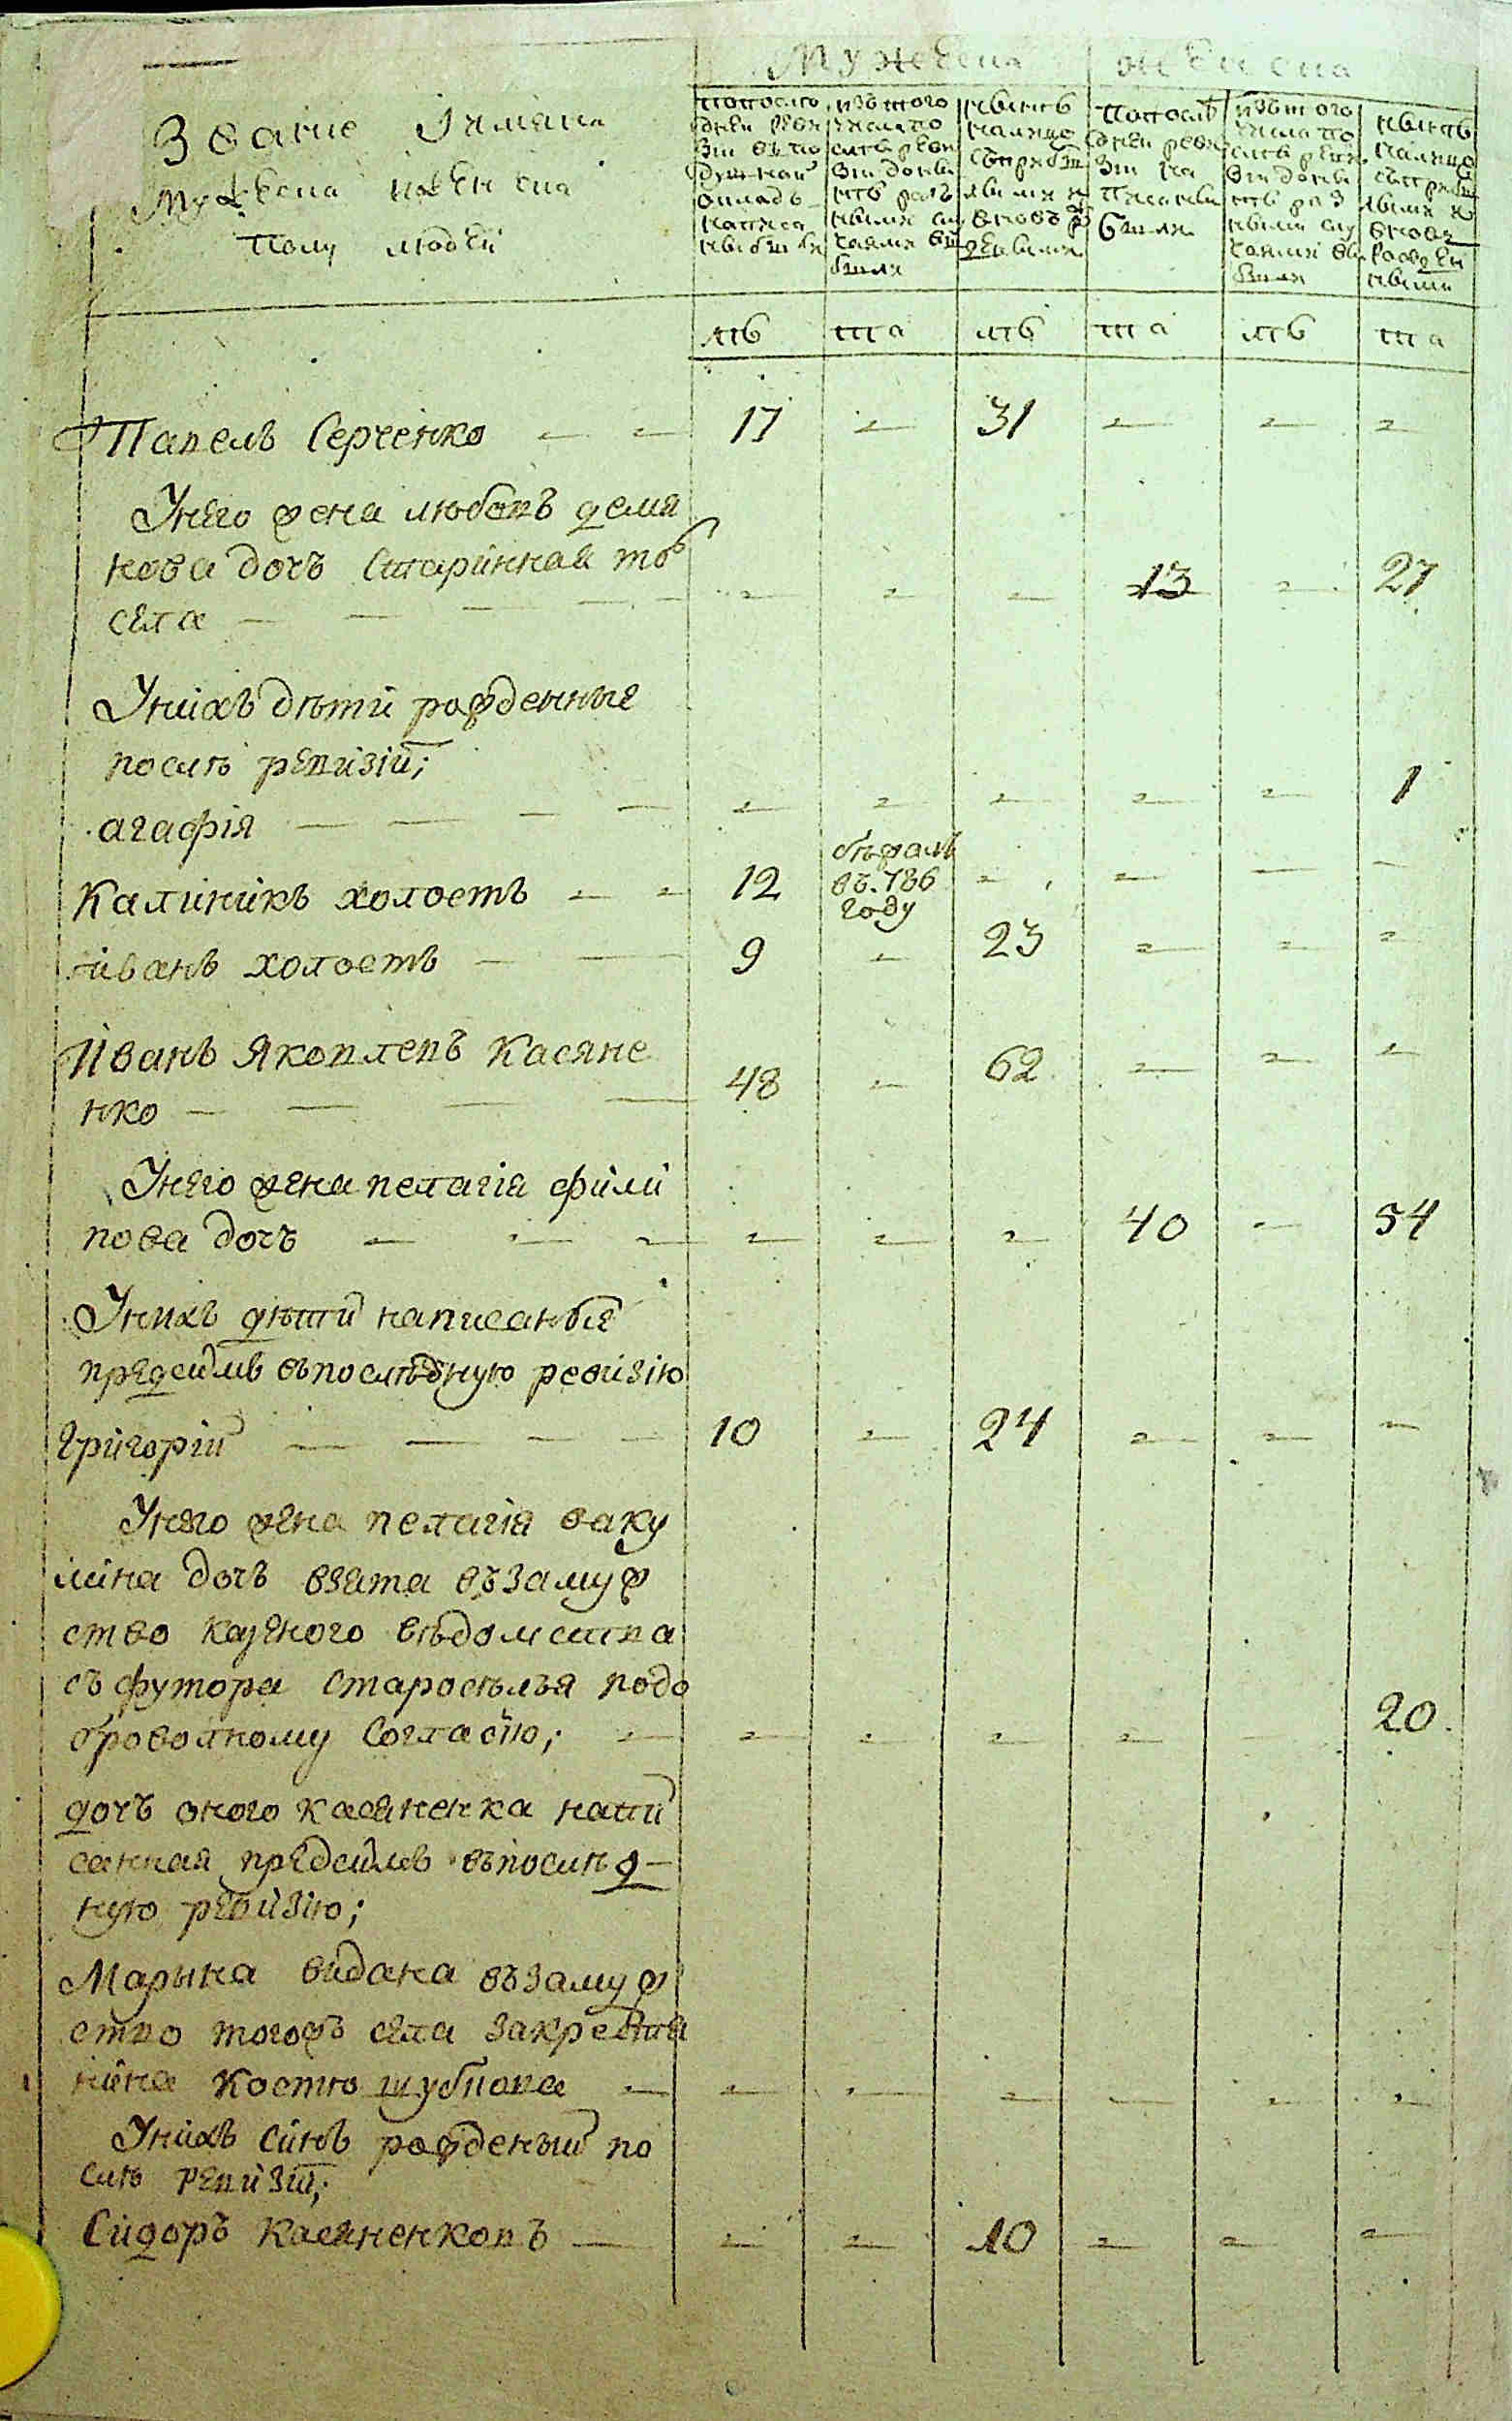 Мужеска женска
Званіе Имяна
Мужеска иженска
полу людей
попосле
дней реви
зіи въ по
душной
окладъ
написа
ны были
изъ того
числа по
слѣ реви
зіи до ны
нѣ разъ
ными слу
чаями вы
были
нынѣ
налицо
съ прибы
лыми и
вновь ро
ждеными
попослѣ
дней реви
зіи на
писаны
были
изъ того
числа по
слѣ реви
зіи до ны
нѣ раз
ными слу
чаями вы
были
нынѣ
налицо
съ прибы
лыми и
вновь
рожден
ными
лѣ та лѣ та лѣ та
Павелъ Серченко - - 17 - 31 - - -
Унего жена любовъ демя
нова дочъ Старинная тог
села - - - - - - - 13 - 27
Унихъ дѣти рожденные
послѣ ревизіи;
агафія - - - - - - - - - 1
Калиникъ холостъ - - 12 бѣжалъ въ 786 году - - - -
иванъ холостъ - - 9 - 23 - - -
Иванъ Яковлевъ Касяне
нко - - - - 48 - 62 - - -
Унего жена пелагія фили
пова дочъ - - - - - - 40 - 54
Унихъ дѣти написаные
предсимъ въпослѣднюю ревизію
Григорій - - - - 10 - 24 - - -
Унего жена пелагія ваку
лина дочъ взята въ замуж
ство казеного вѣдомства
съ футора Староселья подо
броволному Согласію; - - - - - - 20
дочъ оного касяненка напи
санная предсимъ въпослѣд-
ную ревизію;
Марына видана въ замуж
ство тогожъ села закрестя
нина Костю шубнова - - - - - - -
Унихъ синъ рожденый по
слѣ ревизіи;
Сидоръ Касяненковъ - - - 10 - - -